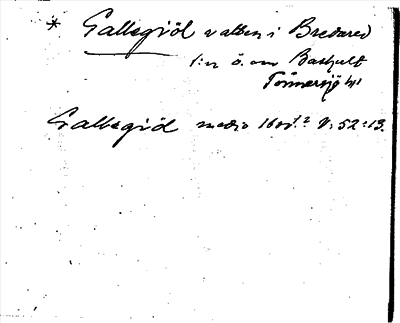 * Gallsgiöl vatten i Bredared
1:n ö. om Bashult
Tönnersjö hd
Gallsgiöl medio 1600t.? V: 52:13.